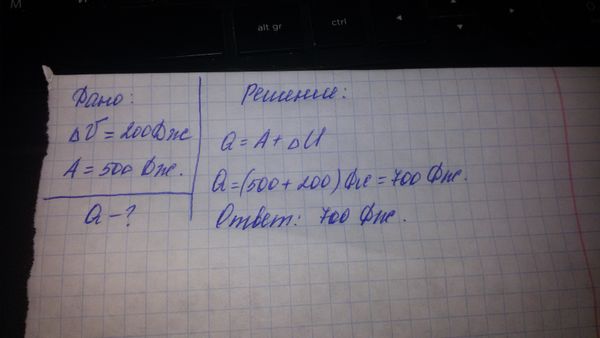 M
alt gr
ctrl
Дано:
ΔU = 200 Дж
A = 500 Дж.
Q - ?
Решение:
Q = A + ΔU
Q = (500 + 200) Дж = 700 Дж.
Ответ: 700 Дж.